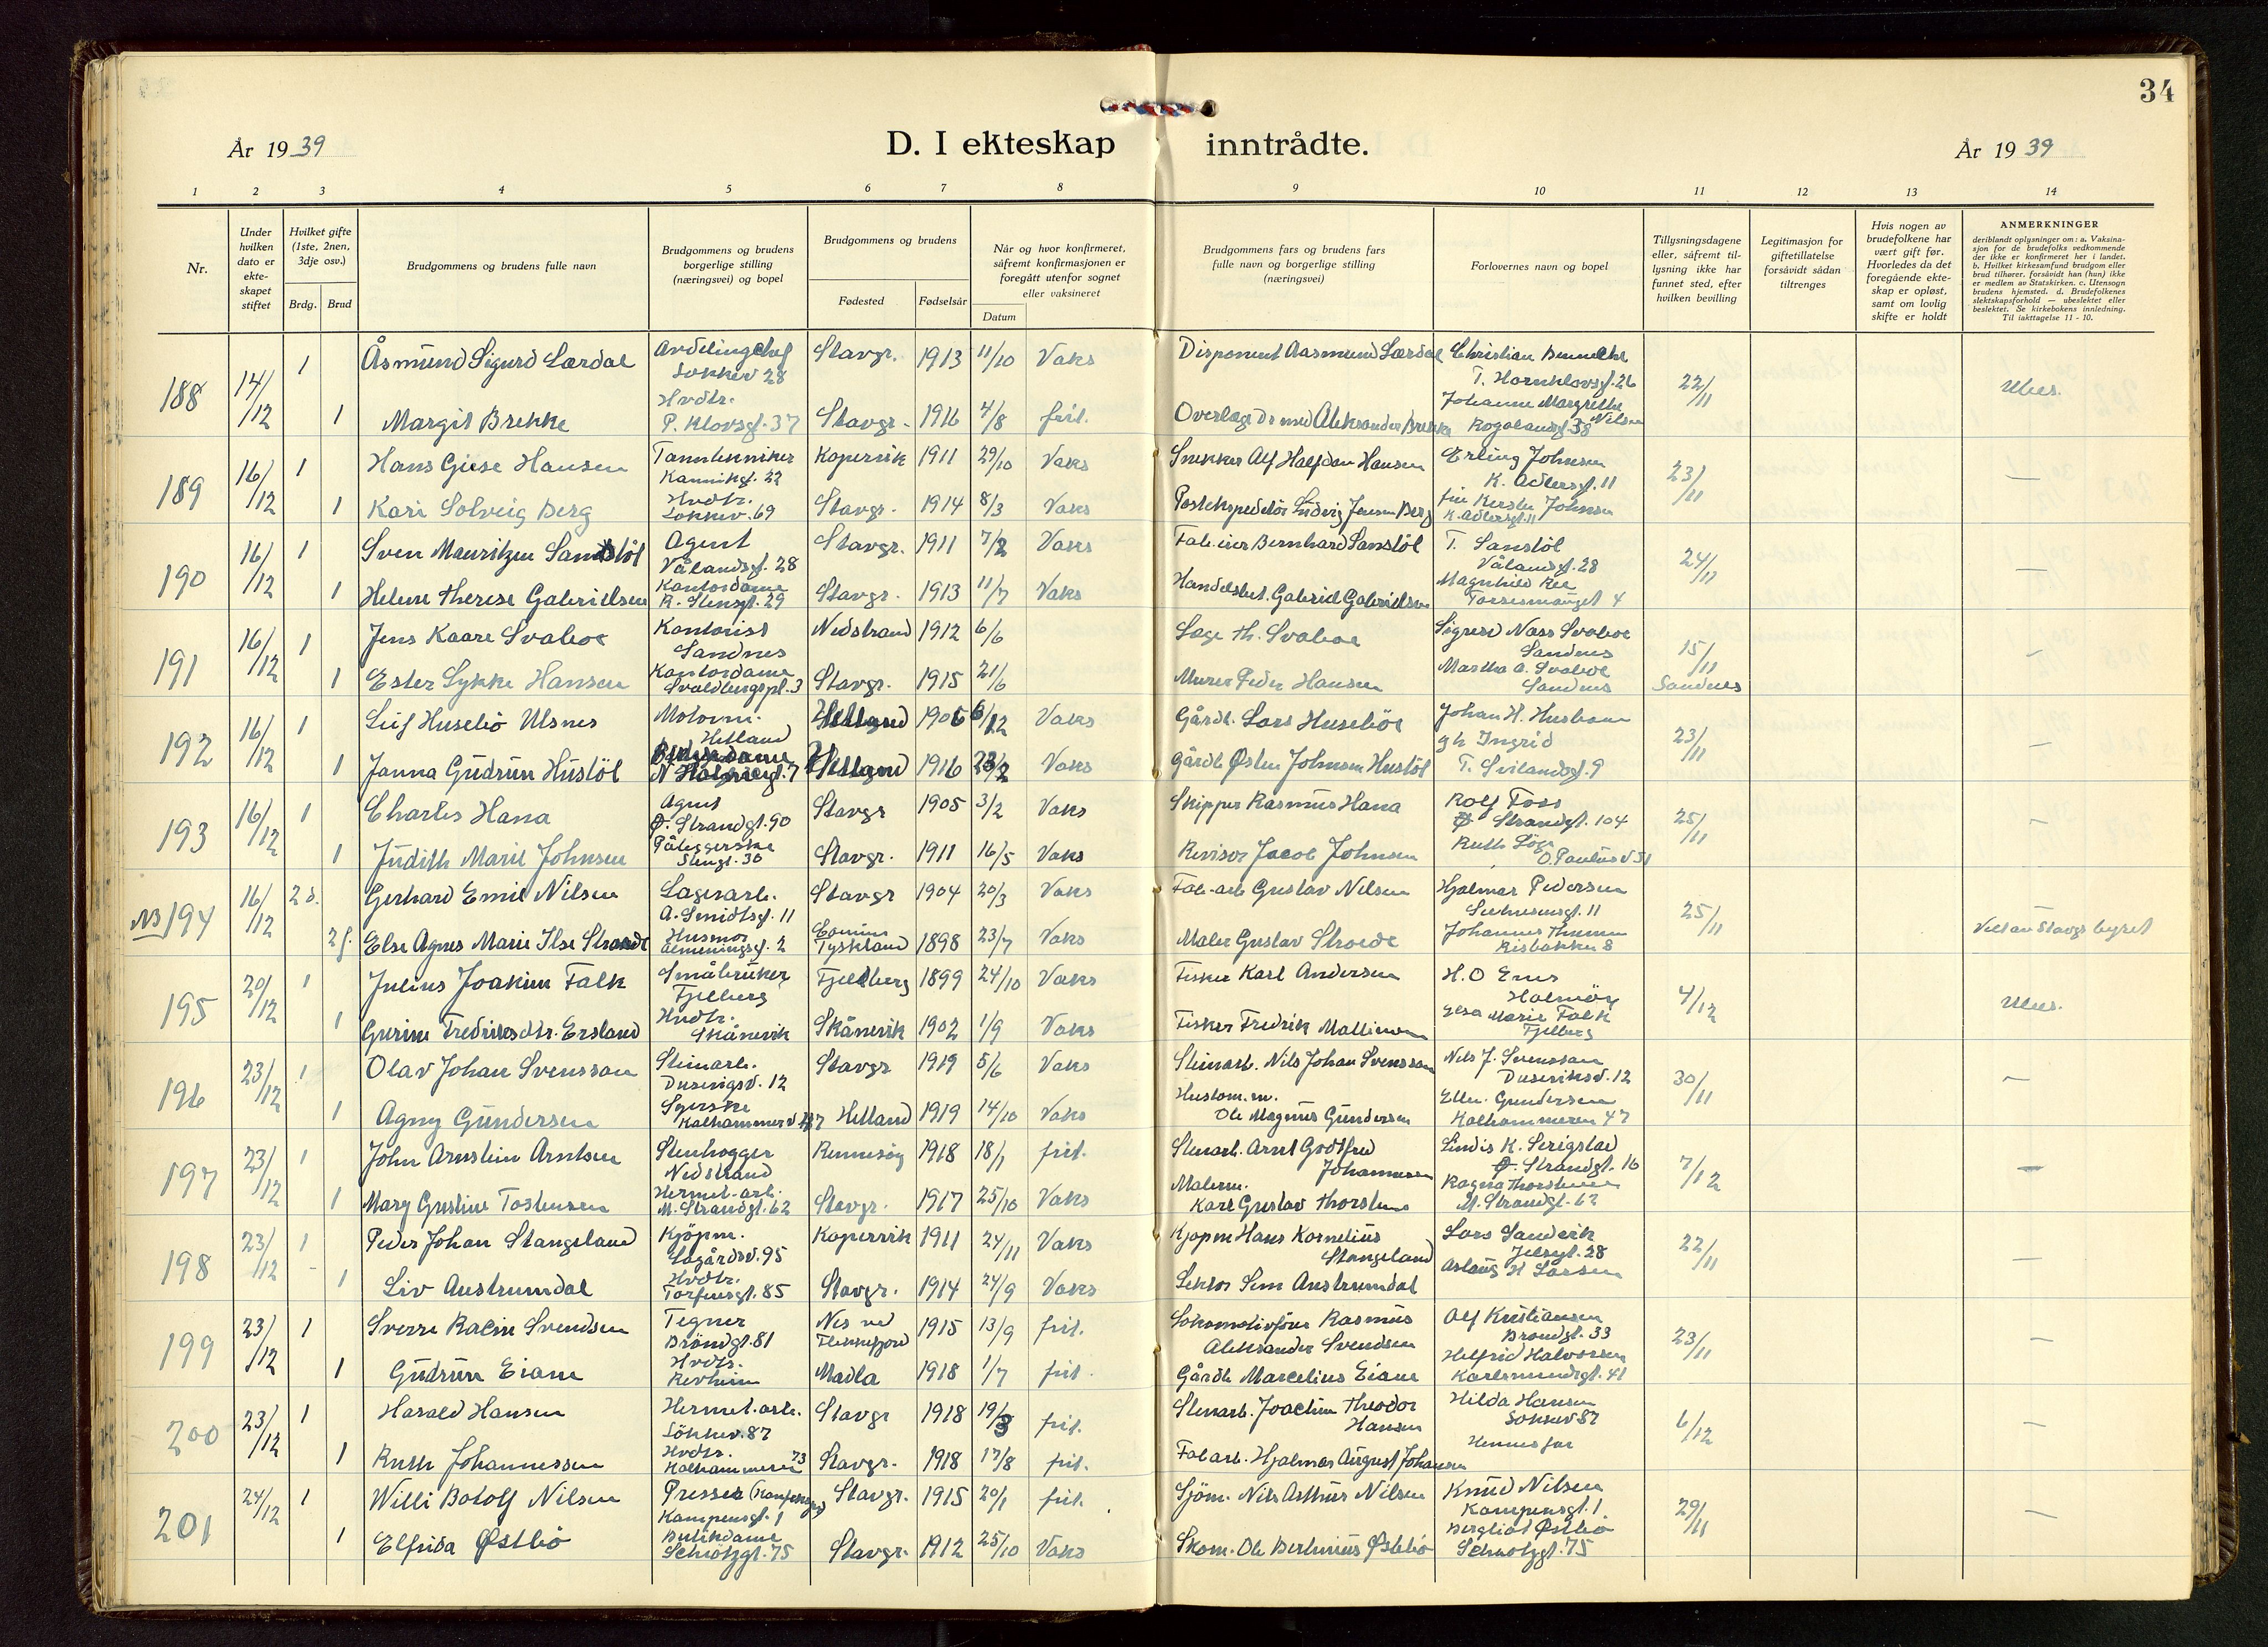 34
År 19 39
D. I ekteskap inntrådte.
År 19 39
1 2 3 4 5 6 7 8 9 10 11 12 13 14
Nr.
Under hvilken dato er ekteskapet stiftet
Hvilket gifte (1ste, 2nen, 3dje osv.)
Brdg. Brud
Brudgommens og brudens fulle navn
Brudgommens og brudens borgerlige stilling (næringsvei) og bopel
Brudgommens og brudens
Fødested Fødselsår
Når og hvor konfirmeret, såfremt konfirmasjonen er foregått utenfor sognet eller vaksineret
Datum
Brudgommens fars og brudens fars fulle navn og borgerlige stilling (næringsvei)
Forlovernes navn og bopel
Tillysningsdagene eller, såfremt tillysning ikke har funnet sted, efter hvilken bevilling
Legitimasjon for giftetillatelse forsåvidt sådan tiltrenges
Hvis nogen av brudefolkene har vært gift før. Hvorledes da det foregående ekteskap er opløst, samt om lovlig skifte er holdt
ANMERKNINGER
deriblandt oplysninger om: a. Vaksinasjon for de brudefolks vedkommende der ikke er konfirmeret her i landet. b. Hvilket kirkesamfund brudgom eller brud tilhører, forsåvidt han (hun) ikke er medlem av Statskirken. c. Utensogn brudens hjemsted. d. Brudefolkenes slektskapsforhold — ubeslektet eller beslektet. Se kirkebokens innledning. Til iakttagelse 11 - 10.
188 14/12 1 Åsmund Sigurd Lærdal Avdelingchef Stavgr. 1913 11/10 Vaks Disponent Aasmund Lærdal Christian 22/11 Ubes.
28 T. Hornklovsgt. 26
Hvdtr. Johanne Margrethe Nilsen
1 Margit Brekke P. Klovsgt. 37 Stavgr. 1916 4/8 frit. Overlæge Dr med Aleksander Brekke Rogalandsgt. 38
189 16/12 1 Hans Giese Hansen Tanntekniker Kopervik 1911 29/10 Vaks Snekker Alf Halfdan Hansen Erling Johnsen 23/11 —
Kannikgt. 22 K. Adlersgt. 11
1 Kari Solveig Berg Hvdtr. 69 Stavgr. 1914 8/3 Vaks Postekspeditør Ludvig Jensen Berg Johnsen
K. Adlersgt. 11
190 16/12 1 Sven Mauritzen Sandstöl Agent Stavgr. 1911 7/2 Vaks Fab.eier Bernhard Sanstöl T. Sanstöl 24/11 —
Vålandsgt. 28 Vålandsgt. 28
1 Helene Therese Gabrielsen Kontordame Stavgr. 1913 11/7 Vaks Handelsbet. Gabriel Gabrielsen Magnhild Ree
R. Stensgt. 29 4
191 16/12 1 Jens Kaare Svaboe Kontorist Nedstrand 1912 6/6 Th. Svaboe Sigurd Nass Svaboe 15/11 —
Sandnes Sandnes
1 Ester Lykke Hansen Kontordame Stavgr. 1915 21/6 Murer Peder Hansen Martha A. Svaboe Sandnes
3 Sandnes
192 16/12 1 Leif Husebö Ulsnes Motorm. Hetland 1906 6/12 Vaks Gårdb. Lars Huseböe Johan H. 23/11 —
Hetland gh Ingrid
1 Janna Gudrun Hustöl Hetland 1916 23/2 Vaks Gårdb Østen Johnsen Hustöl T. Svilandsgt. 9
193 16/12 1 Charles Hana Agent Stavgr 1905 3/2 Vaks Skipper Rasmus Hana Rolf Foss 25/11 —
Ø. Strandgt. 90 Ø Strandgt. 104
1 Judith Marie Johnsen Påleggerske Stavgr. 1911 16/5 Vaks Revisor Jacob Johnsen Ruth
Stengt. 30 O. Paulus v 31
NB 194 16/12 2 s. Gerhard Emil Nilsen Lagerarb. Stavgr 1904 20/3 Vaks Fab-arb Gustav Nilsen Hjalmar Pedersen 25/11
A. Smidtsgt. 11 11
2 f. Else Agnes Marie Ilse Stroede Husmor Tyskland 1898 23/7 Vaks Maler Gustav Stroede Johannes
Almenningsgt. 2 Risbakken 8
195 20/12 1 Julius Joakim Falk Småbruker Fjeldberg 1899 24/10 Vaks Fisker Karl Andersen H. O Enes 4/12 Ubes.
Fjelberg Halsnöy
1 Gurine Fredriksdtr. Ersland Hvdtr. Skånevik 1902 1/9 Vaks Fisker Fredrik Mallinson Marie Falk
Skånevik Fjelberg
196 23/12 1 Olav Johan Svensson Stenarb. Stavgr 1919 5/6 Vaks Stenarb. Nils Johan Svensson Nils J. Svensson 30/11 —
Dusevigsv. 12 Duseviksv. 12
1 Agny Gundersen Syerske Hetland 1919 14/10 Vaks Ole Magnus Gundersen Ellen Gundersen
Kalhammerv 47 Kalhammeren 47
197 23/12 1 John Arnstein Arntsen Stenhogger Rennesöy 1918 18/1 frit. Stenarb. Arnt Godtfred Johannessen Lindis K. Serigstad 7/12 —
Nedstrand Ø. Strandgt. 16
1 Mary Gustine Tostensen Hermet-arb. Stavgr. 1917 25/10 Vaks Malerm. Karl Gustav Thorstensen Ragna Thorstensen
M. Strandgt. 62 M. Strandgt. 62
198 23/12 1 Peder Johan Stangeland Kjöpm. Kopervik 1911 24/11 Vaks Kjöpm Hans Kornelius Stangeland Lars Sandvik 22/11 —
Lagårdsv. 95 Jelsagt. 28
1 Liv Austrumdal Hvdtr. Stavgr. 1914 24/9 Vaks Lektor Sem Austrumdal Aslaug H Larsen
Torfinsgt. 85
199 23/12 1 Sverre Kalin Svendsen Tegner Nes ved Flekkefjord 1915 13/9 frit. Lokomotivförer Rasmus Aleksander Svendsen Alf Kristiansen 23/11 —
Bröndgt. 81 Bröndgt. 33
1 Gudrun Eiane Hvdtr. Madla 1918 1/7 frit. Gårdb Marcelius Eiane Helfrid Halvorsen
Revheim Karlsmindegt. 41
200 23/12 1 Harald Hansen Hermet.arb. Stavgr 1918 19/3 frit. Stenarb. Joachim Theodor Hansen Hilda Hansen 6/12 —
87 87
1 Ruth Johannessen Hvdtr. Stavgr. 1918 17/8 frit. Fabarb. Hjalmar August Johansen Hennes far
Kalhammeren 73
201 24/12 1 Willi Botolf Nilsen Presser Stavgr. 1915 20/1 frit. Sjöm. Nils Arthur Nilsen Knud Nilsen 29/11 —
Kampensgt. 1 Kampensgt. 1
1 Elfrida Østbö Butikdame Stavgr. 1912 25/10 Vaks Skom. Ole Bertinius Østbö Bergliot Østbö
Schiötzgt. 75 Schiötzgt. 75